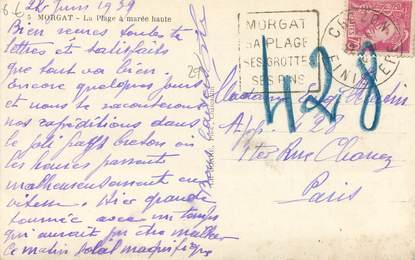 24 Juin 1939
5 MORGAT - La Plage à marée haute
Bien reçues toutes tes
lettres et satisfaits
que tout va bien.
Encore quelques jours
et nous te raconterons
nos expéditions dans
le joli pays breton où
les heures passent
malheureusement en
vitesse. Hier grande
tournée avec un temps
qui aurait pu être meilleur
ce matin soleil magnifique
MORGAT
SA PLAGE
SES GROTTES
SES PINS
FINISTÈRE
428
Madame
App. 428
Rue
Paris